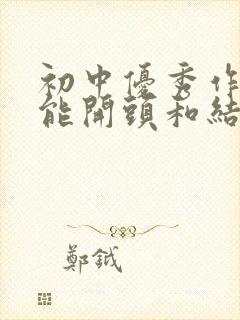 初中優秀作
能開頭和結
鄭鉞